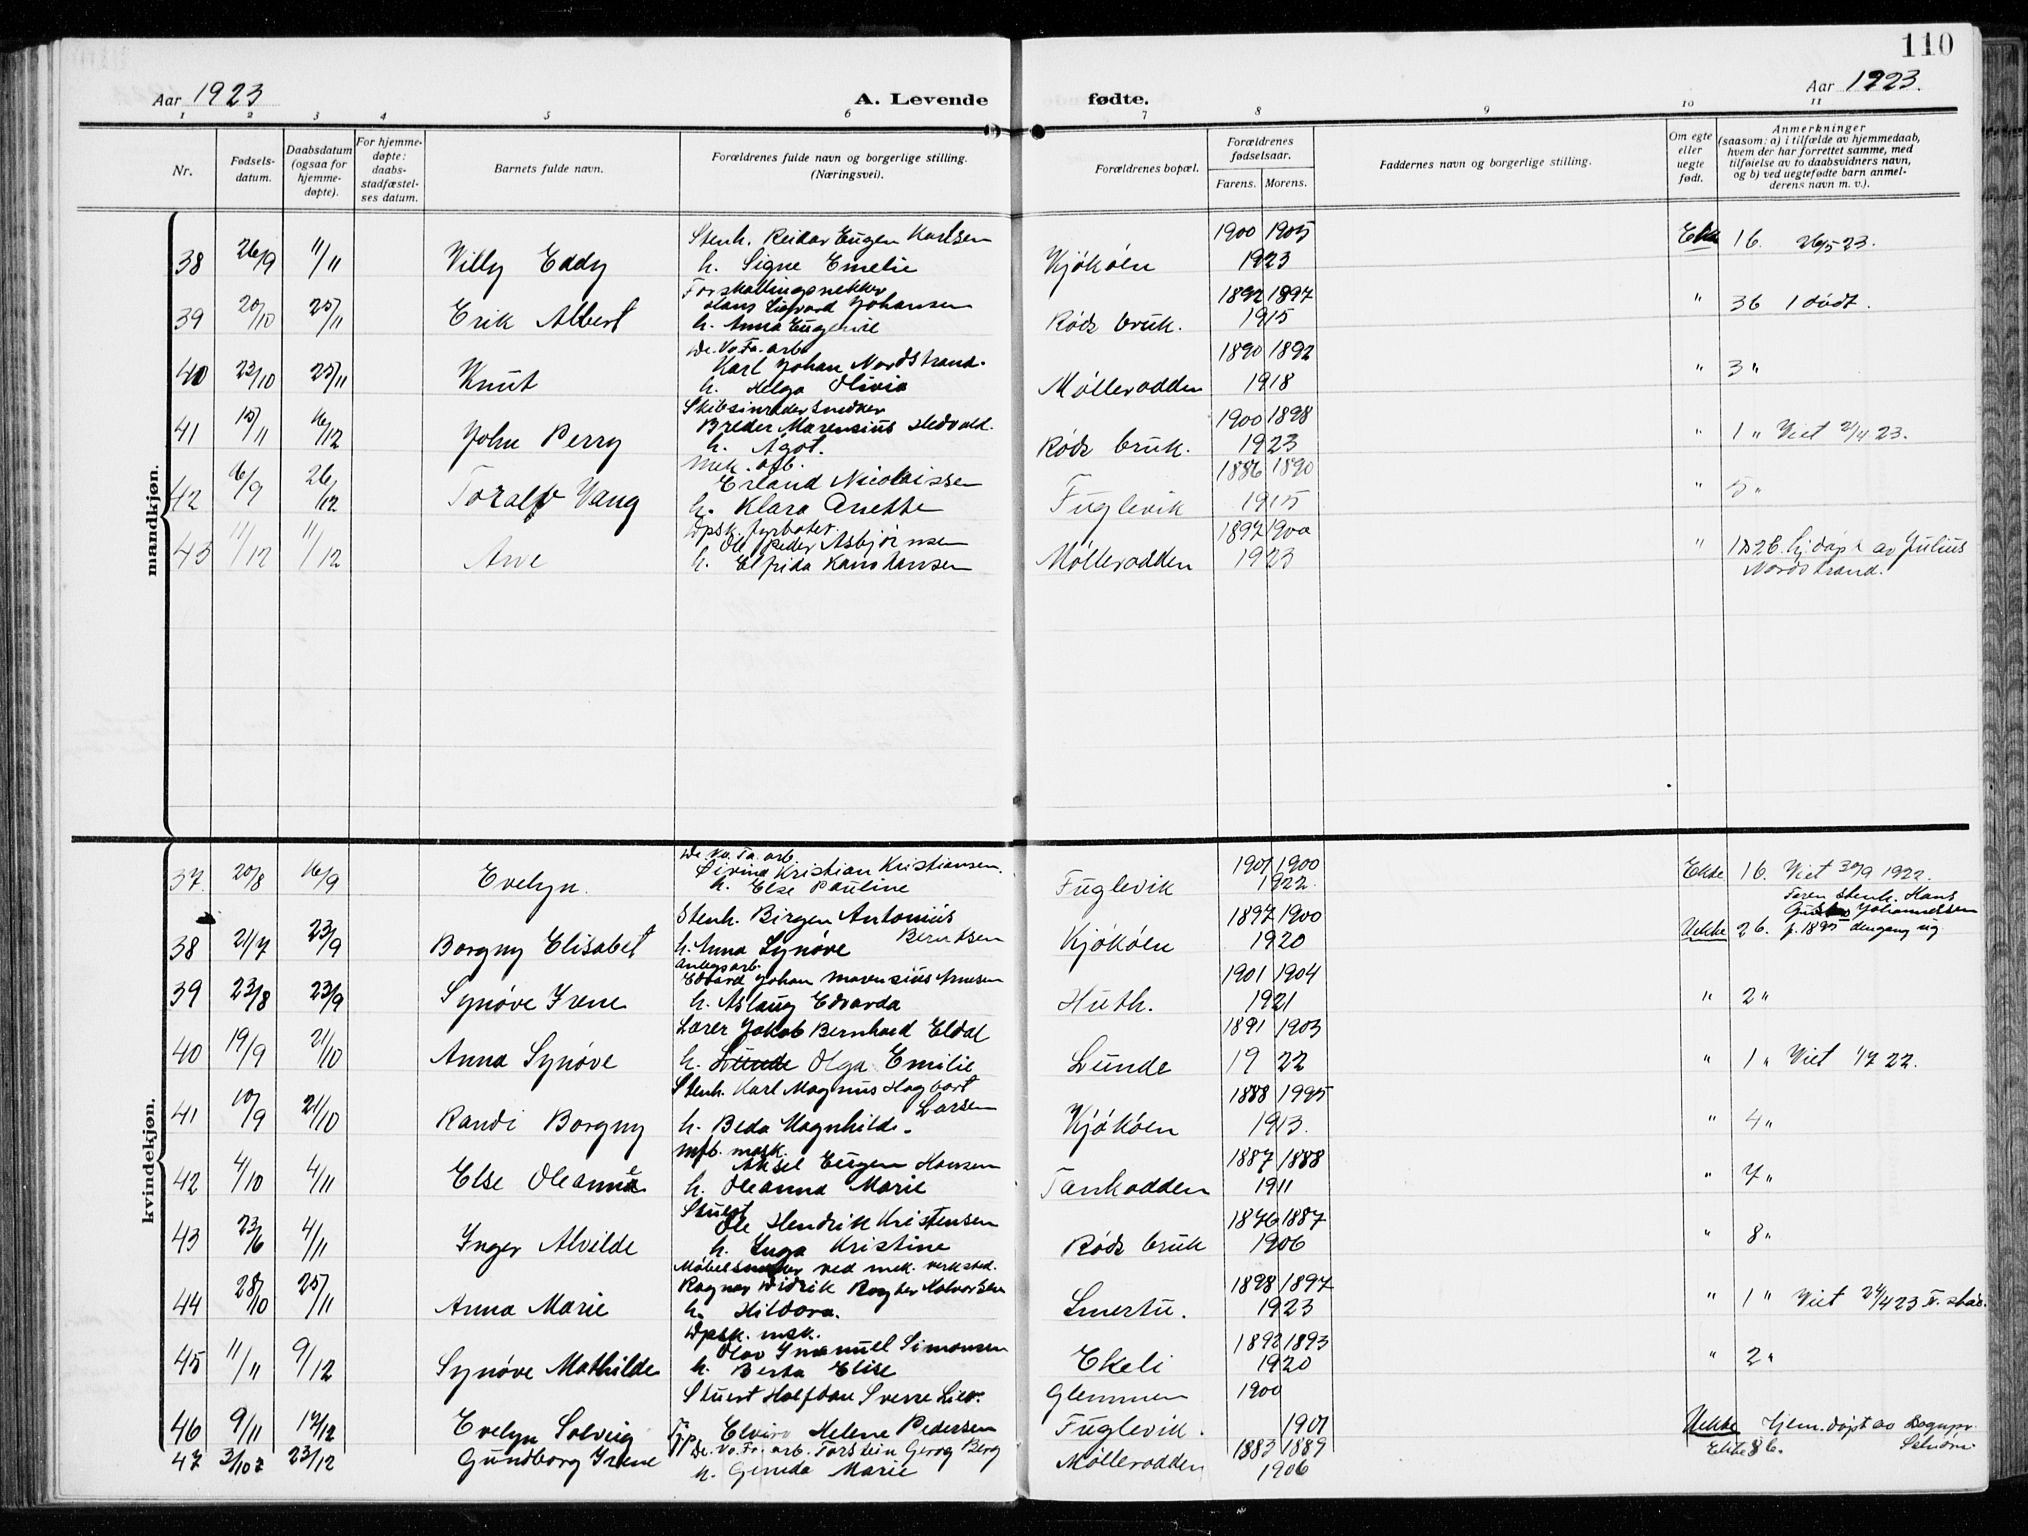 110
Aar 1923
A. Levende fødte.
Aar 1923.
1 2 3 4 5 6 7 8 9 10 11
Nr.
Fødsels-datum.
Daabsdatum (ogsaa for hjemme-døpte).
For hjemme-døpte: daabs-stadfæstel-ses datum.
Barnets fulde navn.
Forældrenes fulde navn og borgerlige stilling. (Næringsvei).
Forældrenes bopæl.
Forældrenes fødselsaar.
Farens. Morens.
Faddernes navn og borgerlige stilling.
Om egte eller uegte født.
Anmerkninger (saasom: a) i tilfælde av hjemmedaab, hvem der har forrettet samme, med tilføielse av to daabsvidners navn, og b) ved uegtefødte barn anmel-derens navn m. v.).
mandkjøn.
Stenh. Reidar Eugen Karlsen 1900 1905
38 26/9 11/11 Villy Eddy h. Signe Emelie Kjøkøen 1923 Ekte 16. 26/5 23.
Forskallingsnekker
Hans Sigvard Johansen 1892 1897
39 20/10 25/11 Erik Albert h. Anna Eugenie Røds bruk. 1915 " 36 1 dødt.
De. No. Fa. arb.
Karl Johan Nordstrand. 1890 1892
40 23/10 25/11 Knut h. Helga Olivia Mølleradden 1918 " 3 "
Skibsinredersnedker
Breder Marensius Hedvald. 1900 1898
41 15/11 16/12 John Perry h. Agot. Røds bruk. 1923 " 1 " Viet 2/4 23.
Mek. arb.
Erland Nicolaissen 1886 1890
42 6/9 26/12 Toralf Vang h. Klara Anette Fuglevik 1915 " 5 "
Dpsk. fyrbøter.
Ole Peder Asbjørnsen 1897 1900
43 11/12 11/12 Arve h. Elfrida Konstansen Mølleradden 1923 " hj.døpt av Julius
Nordstrand.
kvindekjøn.
De. No. Fa. arb.
Øivind Kristian Kristiansen. 1901 1900
37. 20/8 16/9 Evelyn. h. Else Pauline Fuglevik 1922. Ekte 16. Viet 30/9 1922.
Stenh. Birger Antonius Berntsen 1897 1900 Faren stenh. Hans
Gustav Johannessen
38 21/7 23/9 Borgny Elisabet h. Anna Synøve Kjøkøen 1920 Uekte 26. f. 1895 dengang ug
Anlegsarb.
Edvard Johan Marensius Arnesen 1901 1904
39 23/8 23/9 Synøve Irene h. Aslaug Edvarda Huth. 1921 " 2 "
Lærer Jakob Bernhard Eldal 1891 1903
40 19/9 21/10 Anna Synøve h. Lunde Olga Emilie Lunde 1922 " 1 " Viet 1/7 22.
Stenh. Karl Magnus Hagbart Larsen 1888 1995
41 10/9 21/10 Randi Borgny h. Beda Magnhilde. Kjøkøen 1913. " 4 "
Mfb. mask.
Aksel Eugen Hansen 1887 1888
42 4/10 4/11 Else Oleanne h. Oleanna Marie Tankodden 1911 " 7 "
Stuert
Ole Hendrik Kristensen 1876 1887
43 23/6 4/11 Inger Alvilde h. Inga Kristine Røds bruk 1906 " 8 "
Møbelsnekker ved mek. verksted.
Ragnar Didrik Halvorsen 1898 1897
44 28/10 25/11 Anna Marie h. Hildora. Smertu. 1923 " 1 " Viet 24/4 23
Dpsk. msk.
Olav Imanuel Simonsen 1892 1893
45 11/11 9/12 Synøve Mathilde h. Berta Elise Ekeli 1920 " 2 "
Stuert Halfdan Sverre Lier. Glemmen 1900
46 9/11 14/12 Evelyn Solveig Elvira Helene Pedersen Fuglevik. 1901 Uekte Hjem.døpt av
47 3/10 23/12 Gundborg Irene De. No. Fa. arb. Torstein Georg Berg 1883 1889
h. Gerda Marie Mølleradden 1906 Ekte 86.